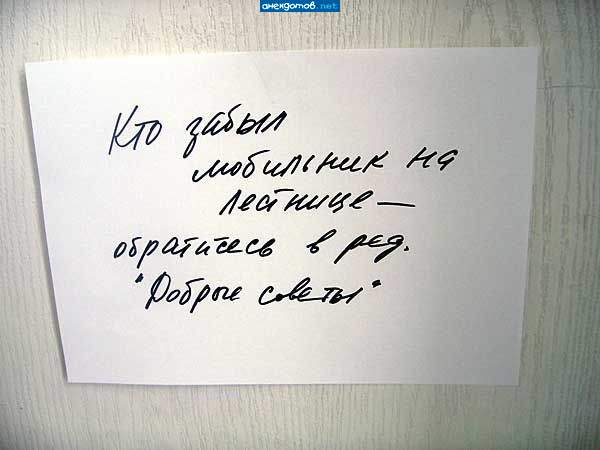 анекдотов.net
Кто забыл
мобильник на
лестнице —
обратитесь в ред.
"Добрые советы"